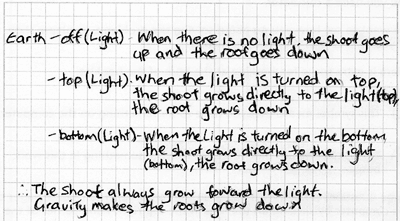 Earth - off (Light) - When there is no light, the shoot goes
up and the root goes down
- top (Light). When the light is turned on top,
the shoot grows directly to the light (top),
the root grows down
- bottom (Light) - When the Light is turned on the bottom
the shoot grows directly to the light
(bottom), the root grows down.
∴ The shoot always grow toward the light.
Gravity makes the roots grow down